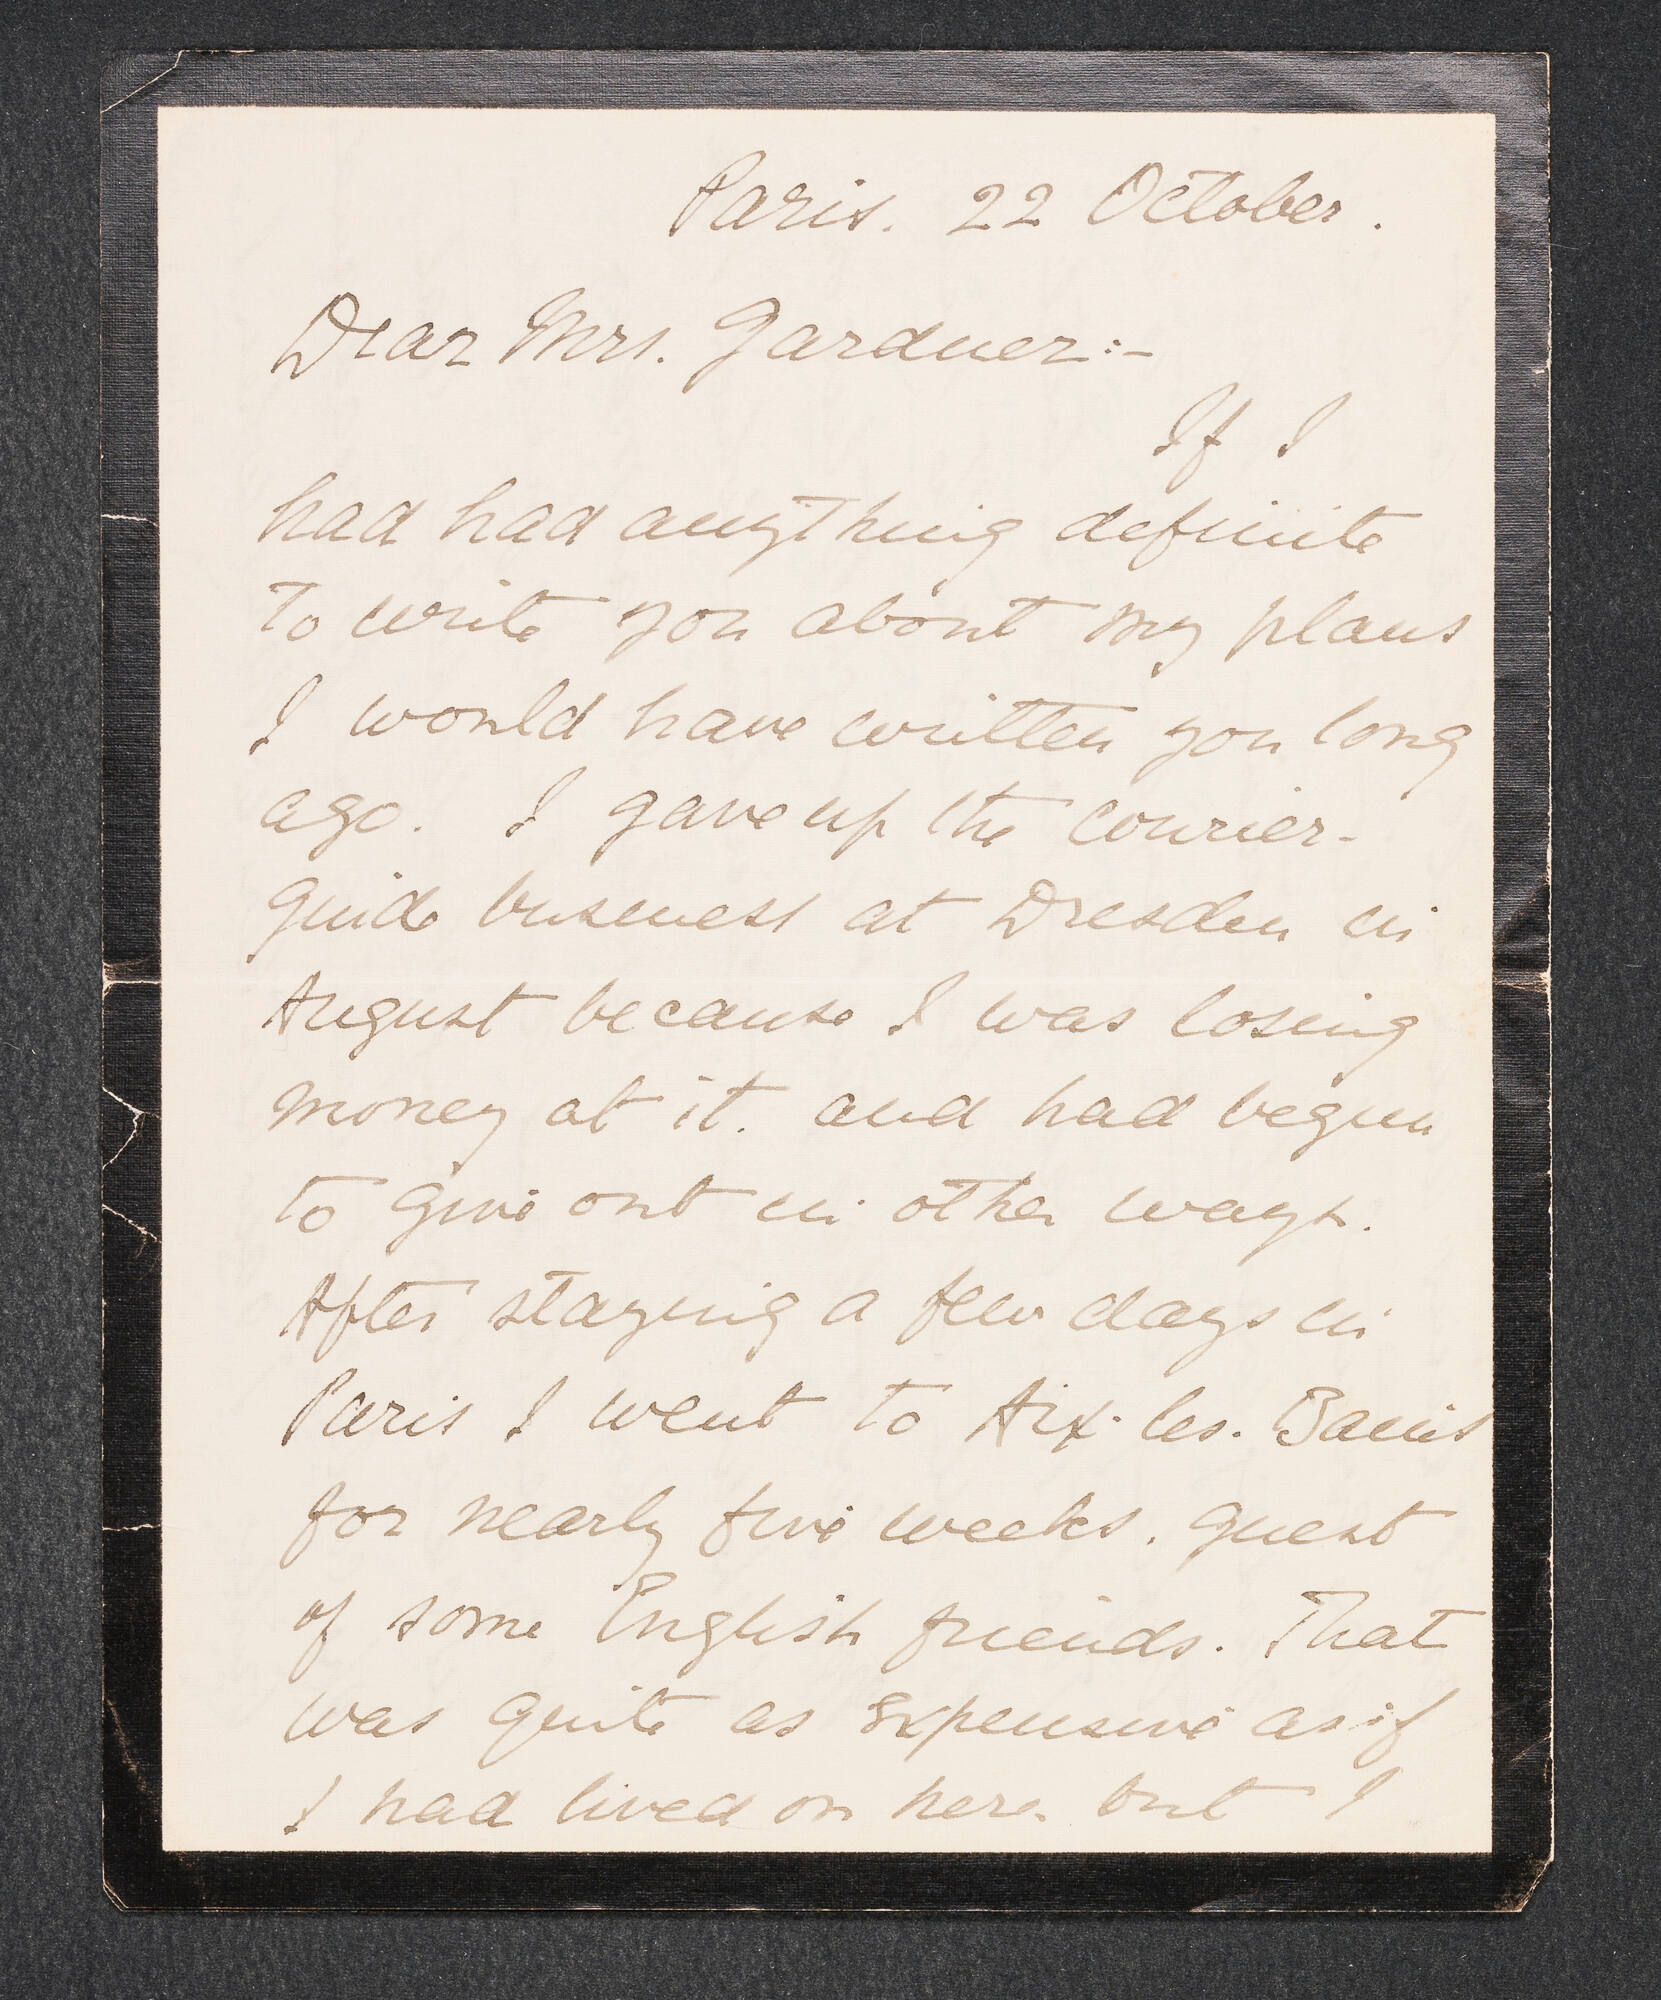 Paris. 22 October.
Dear Mrs. Gardner:-
If I
had had anything definite
to write you about my plans
I would have written you long
ago. I gave up the courier-
guide business at Dresden in
August because I was losing
money at it. and had begun
to give out in other ways.
After staying a few days in
Paris I went to Aix-les-Bains
for nearly five weeks. guest
of some English friends. That
was quite as expensive as if
I had lived on here. but I